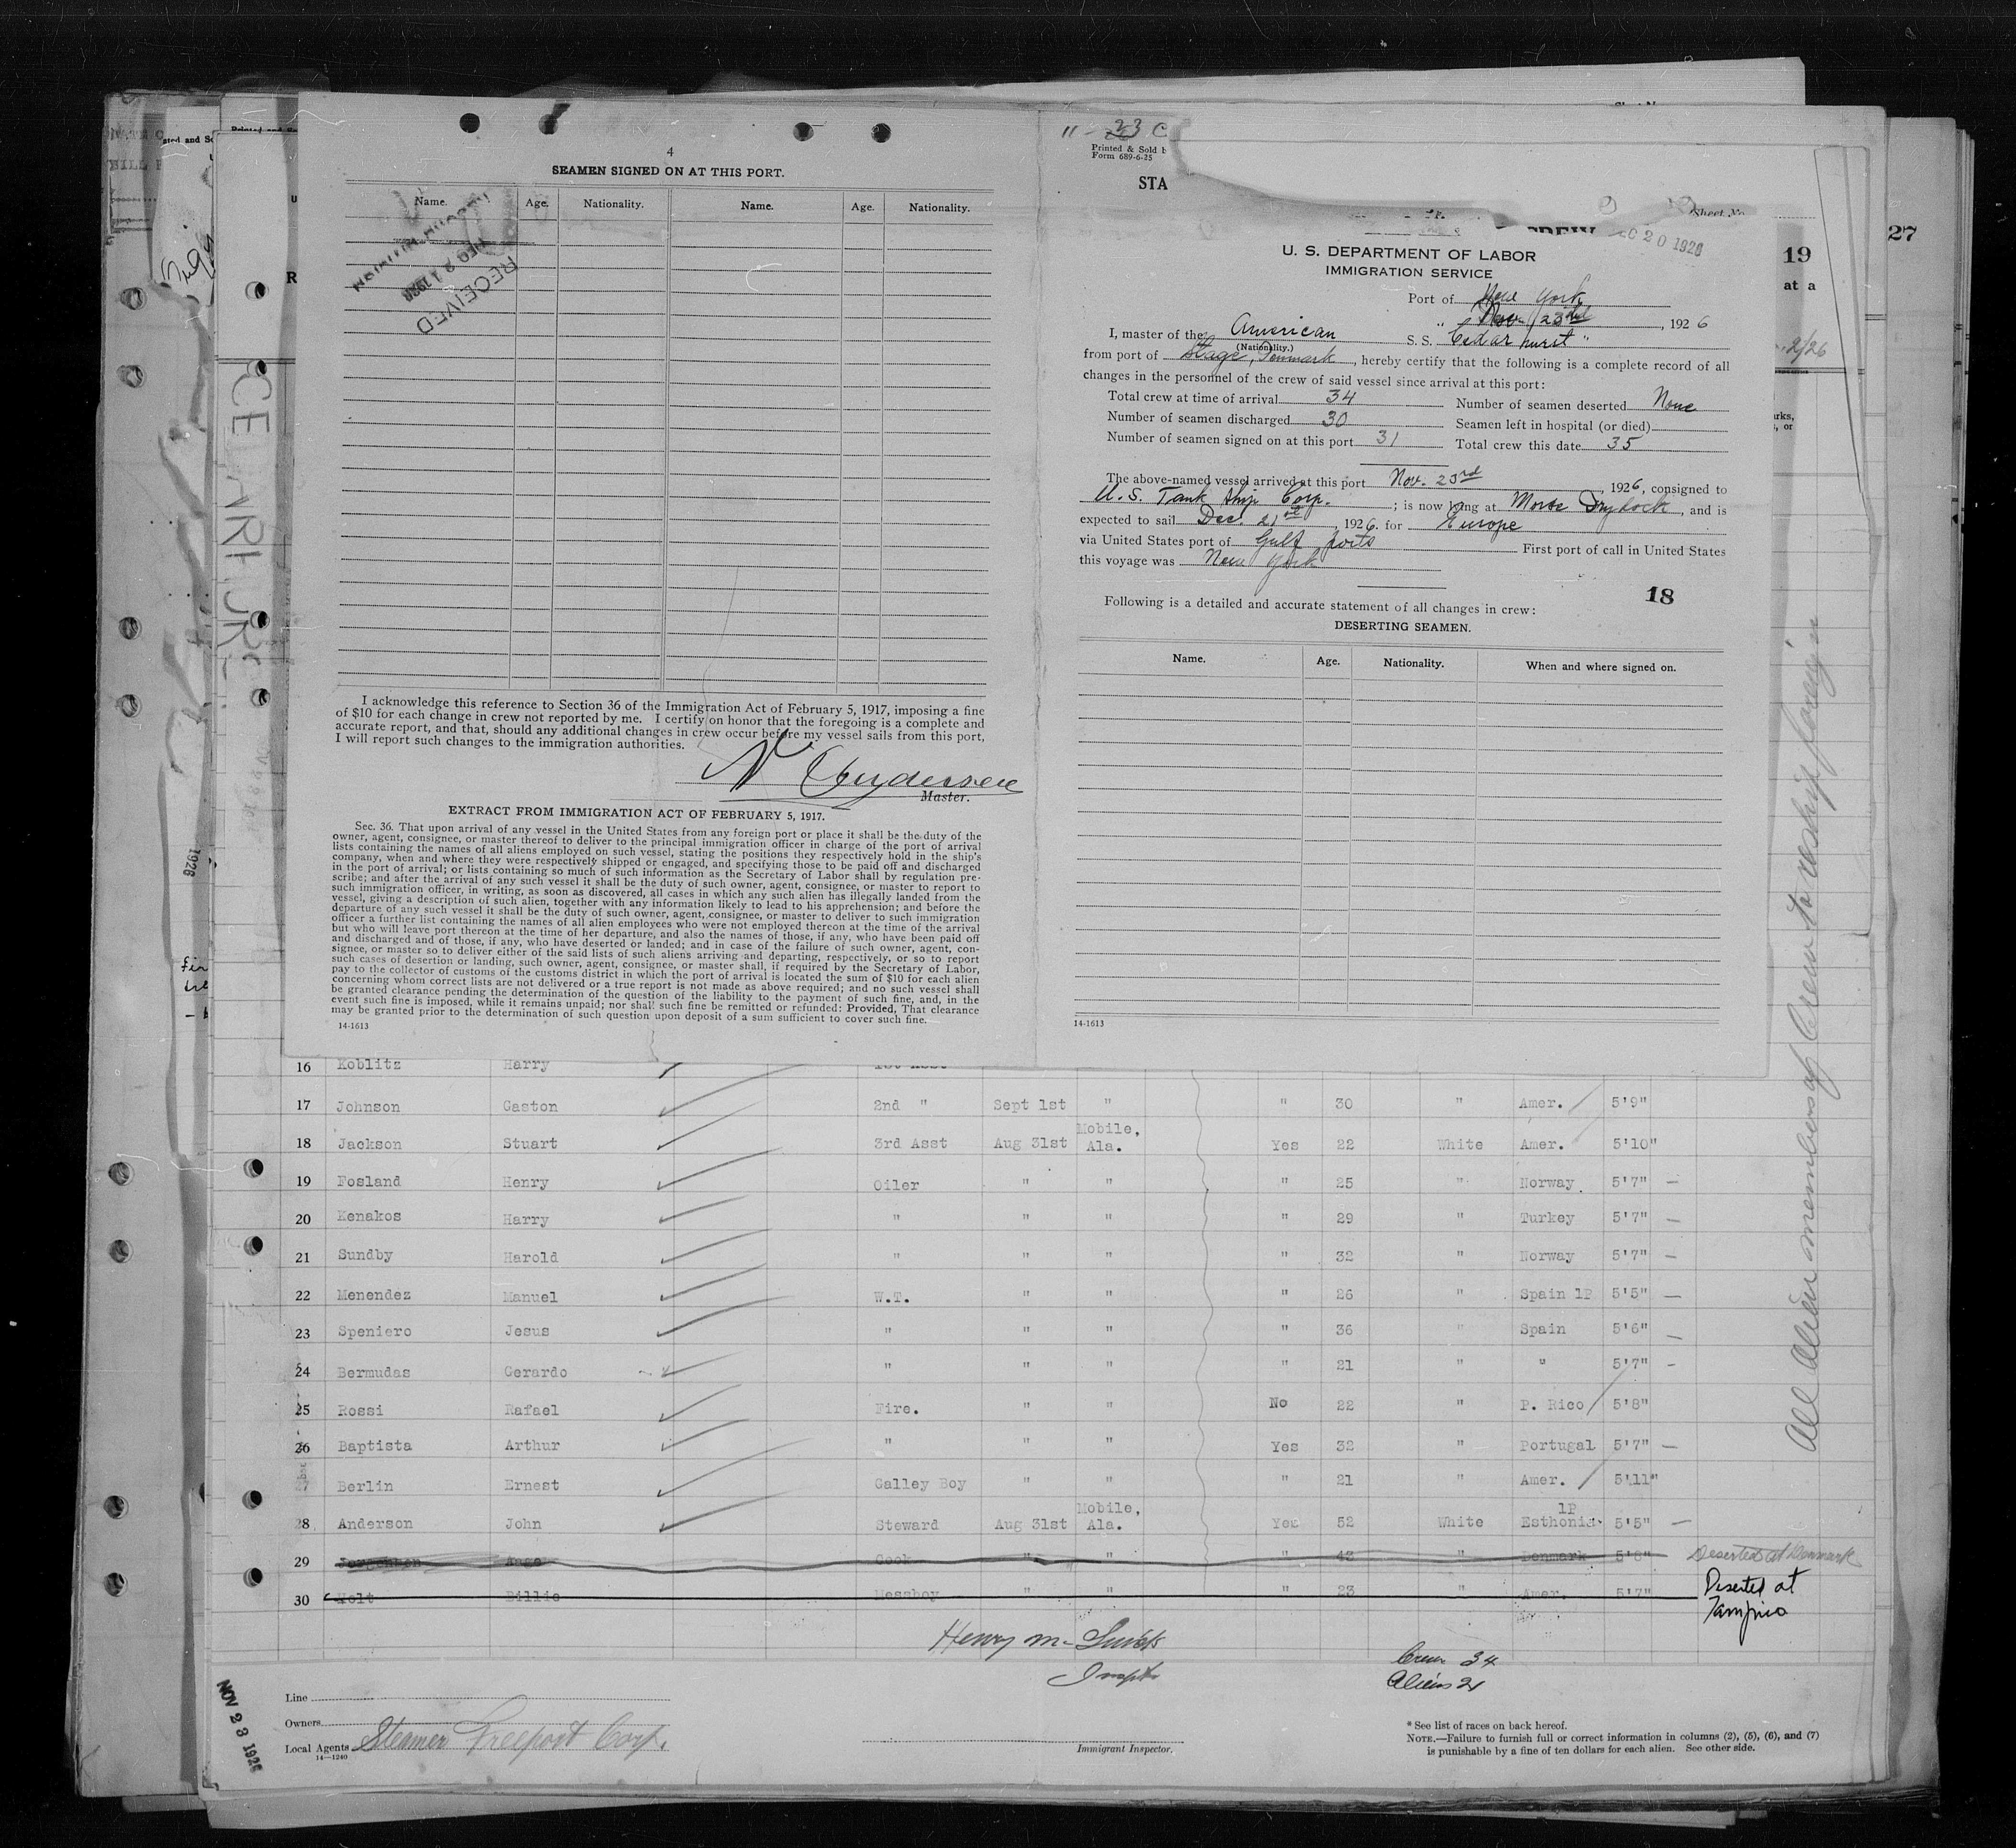 4
SEAMEN SIGNED ON AT THIS PORT.
Name. Age. Nationality. Name. Age. Nationality.
RECEIVED
I acknowledge this reference to Section 36 of the Immigration Act of February 5, 1917, imposing a fine
of $10 for each change in crew not reported by me. I certify on honor that the foregoing is a complete and
accurate report, and that, should any additional changes in crew occur before my vessel sails from this port,
I will report such changes to the immigration authorities.
Master.
EXTRACT FROM IMMIGRATION ACT OF FEBRUARY 5, 1917.
Sec. 36. That upon arrival of any vessel in the United States from any foreign port or place it shall be the duty of the
owner, agent, consignee, or master thereof to deliver to the principal immigration officer in charge of the port of arrival
lists containing the names of all aliens employed on such vessel, stating the positions they respectively hold in the ship's
company, when and where they were respectively shipped or engaged, and specifying those to be paid off and discharged
in the port of arrival; or lists containing so much of such information as the Secretary of Labor shall by regulation pre-
scribe; and after the arrival of any such vessel it shall be the duty of such owner, agent, consignee, or master to report to
such immigration officer, in writing, as soon as discovered, all cases in which any such alien has illegally landed from the
vessel, giving a description of such alien, together with any information likely to lead to his apprehension; and before the
departure of any such vessel it shall be the duty of such owner, agent, consignee, or master to deliver to such immigration
officer a further list containing the names of all alien employees who were not employed thereon at the time of the arrival
but who will leave port thereon at the time of her departure, and also the names of those, if any, who have been paid off
and discharged and of those, if any, who have deserted or landed; and in case of the failure of such owner, agent, con-
signee, or master so to deliver either of the said lists of such aliens arriving and departing, respectively, or so to report
such cases of desertion or landing, such owner, agent, consignee, or master shall, if required by the Secretary of Labor,
pay to the collector of customs of the customs district in which the port of arrival is located the sum of $10 for each alien
concerning whom correct lists are not delivered or a true report is not made as above required; and no such vessel shall
be granted clearance pending the determination of the question of the liability to the payment of such fine, and, in the
event such fine is imposed, while it remains unpaid; nor shall such fine be remitted or refunded: Provided, That clearance
may be granted prior to the determination of such question upon deposit of a sum sufficient to cover such fine.
14-1613
Printed & Sold b
Form 689-6-25
STA
Sheet No.
20 1926
U. S. DEPARTMENT OF LABOR
IMMIGRATION SERVICE
Port of New York
Nov 23rd, 1926
I, master of the American S. S. "Cedarhurst"
(Nationality.)
from port of Stage, Denmark, hereby certify that the following is a complete record of all
changes in the personnel of the crew of said vessel since arrival at this port:
Total crew at time of arrival 34 Number of seamen deserted None
Number of seamen discharged 30 Seamen left in hospital (or died)
Number of seamen signed on at this port 31 Total crew this date 35
The above-named vessel arrived at this port Nov. 23rd, 1926, consigned to
U. S. Tank Ship Corp.; is now lying at Morse Dry dock, and is
expected to sail Dec. 21st, 1926. for Europe
via United States port of Gulf ports First port of call in United States
this voyage was New York
18
Following is a detailed and accurate statement of all changes in crew:
DESERTING SEAMEN.
Name. Age. Nationality. When and where signed on.
14-1613
19
at a
27
2/26
16 Koblitz Harry 1st Asst
17 Johnson Gaston 2nd " Sept 1st " " 30 " Amer. 5'9"
18 Jackson Stuart 3rd Asst Aug 31st Mobile, Ala. Yes 22 White Amer. 5'10"
19 Fosland Henry Oiler " " " 25 " Norway 5'7" —
20 Kenakos Harry " " " " 29 " Turkey 5'7" —
21 Sundby Harold " " " " 32 " Norway 5'7" —
22 Menendez Manuel W.T. " " " 26 " Spain 1P 5'5" —
23 Speniero Jesus " " " " 36 " Spain 5'6" —
24 Bermudas Gerardo " " " " 21 " " 5'7" —
25 Rossi Rafael Fire. " " No 22 " P. Rico 5'8"
26 Baptista Arthur " " " Yes 32 " Portugal 5'7" —
27 Berlin Ernest Galley Boy " " " 21 " Amer. 5'11"
28 Anderson John Steward Aug 31st Mobile, Ala. Yes 52 White 1P Esthonia 5'5" —
29 Jorgensen Aage Cook " " " 43 " Denmark 5'8" Deserted at Denmark
30 Holt Billie Messboy " " " 23 " Amer. 5'7" Deserted at
Tampico
All Alien members of Crew to reship foreign
Crew 34
Aliens 21
NOV 23 1926
Line
Owners
Local Agents Steamer Freeport Corp.
14—1240
Immigrant Inspector.
* See list of races on back hereof.
NOTE.—Failure to furnish full or correct information in columns (2), (5), (6), and (7)
is punishable by a fine of ten dollars for each alien. See other side.